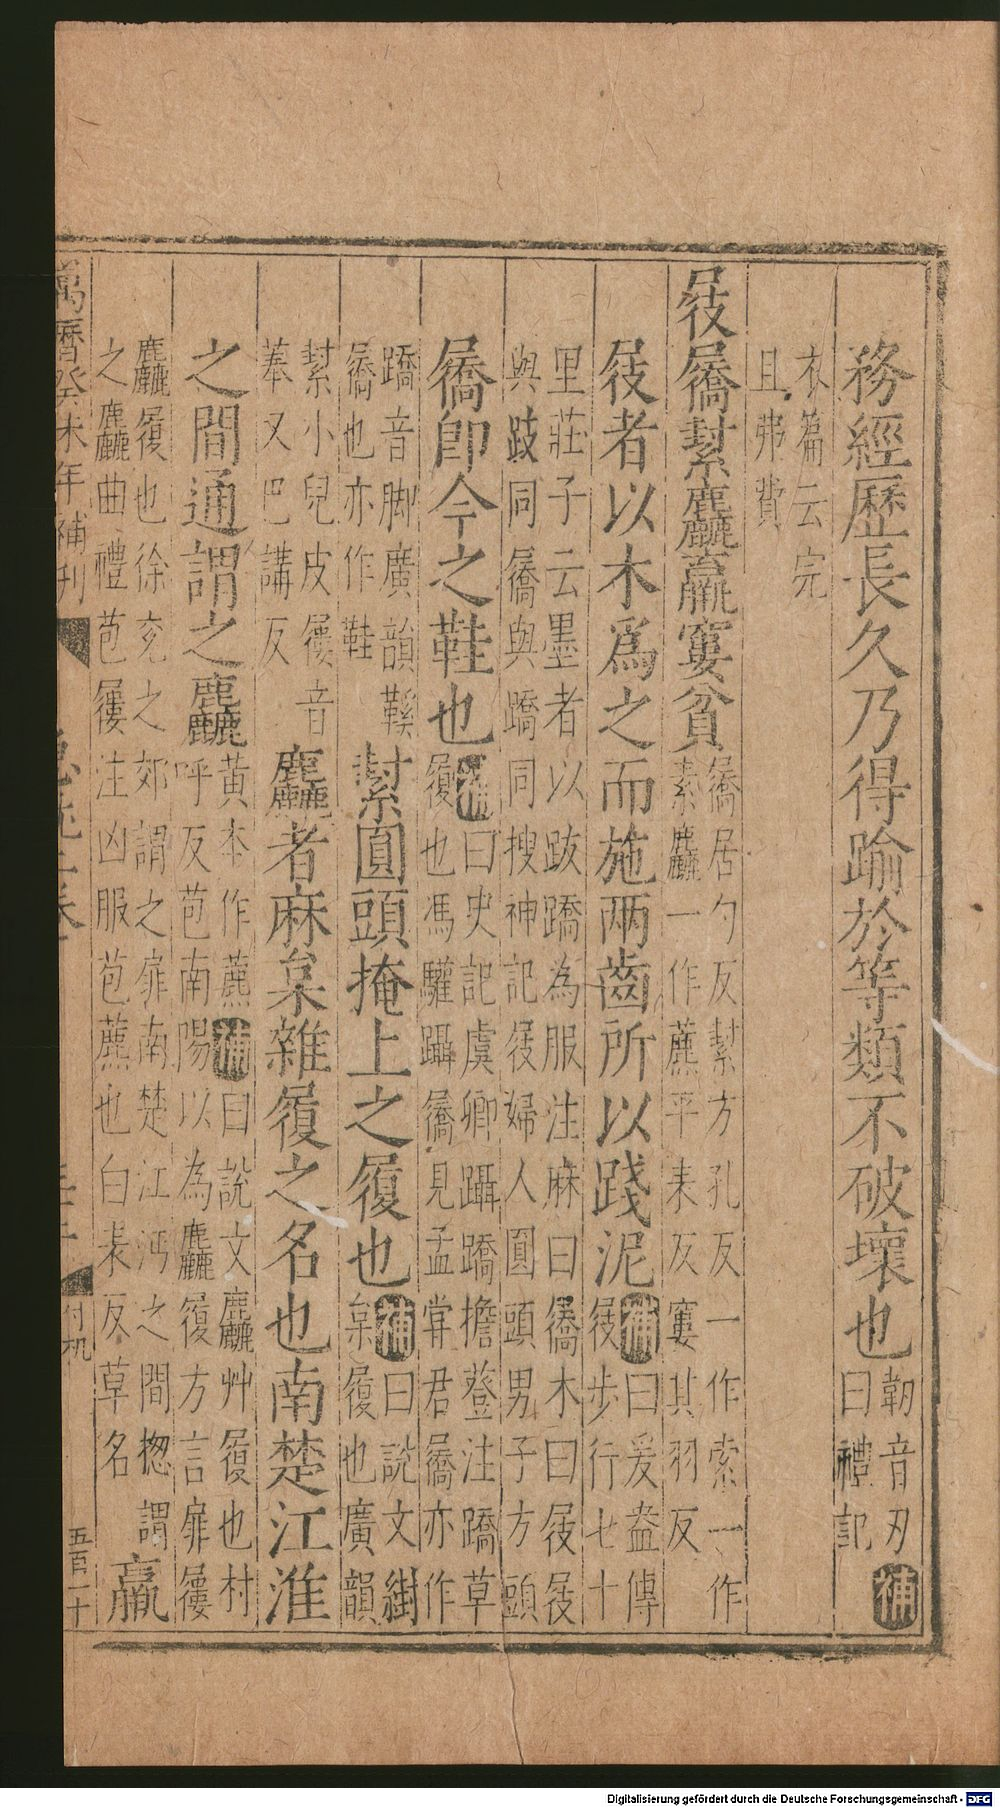 務經歷長久乃得踰於等類不破壞也韌音刃補曰禮記
衣篇云完且弗費
屐屩䋽麤羸窶貧屩居勺反䋽方孔反一作索一作素麤一作䕷平耒反窶其羽反
屐者以木爲之而施兩齒所以踐泥補曰爰盎傳屐步行七十里莊子云墨者以跂蹻為服注麻曰屩木曰屐屐與跂同屩與蹻同搜神記屐婦人圓頭男子方頭
屩即今之鞋也補曰史記虞卿躡蹻擔簦注蹻草履也馮驩躡屩見孟嘗君屩亦作蹻音脚廣韻鞵屩也亦作鞋
䋽圓頭掩上之履也補曰說文䋽枲履也廣韻䋽小兒皮屨音菶又巴講反
麤者麻枲雜履之名也南楚江淮之間通謂之麤黃本作䕷呼反苞南陽以為麤履方言扉屨補曰說文麤艸履也村麤履也徐兗之郊謂之扉南楚江沔之間揔謂之麤曲禮苞屨注凶服苞䕷也白表反草名
羸
萬曆癸未年補刊
付机
五百二十
Digitalisierung gefördert durch die Deutsche Forschungsgemeinschaft - DFG